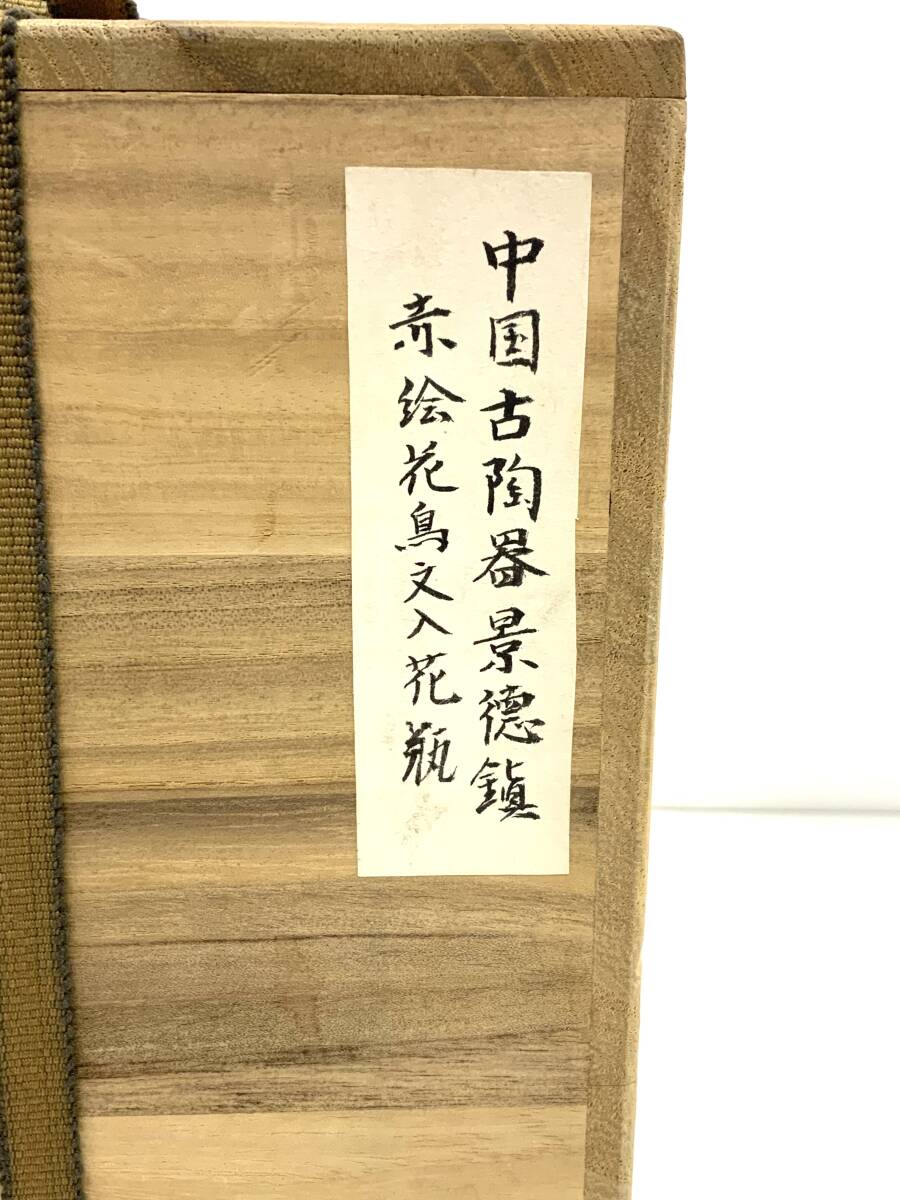 中国古陶器景德鎮
赤絵花鳥文入花瓶